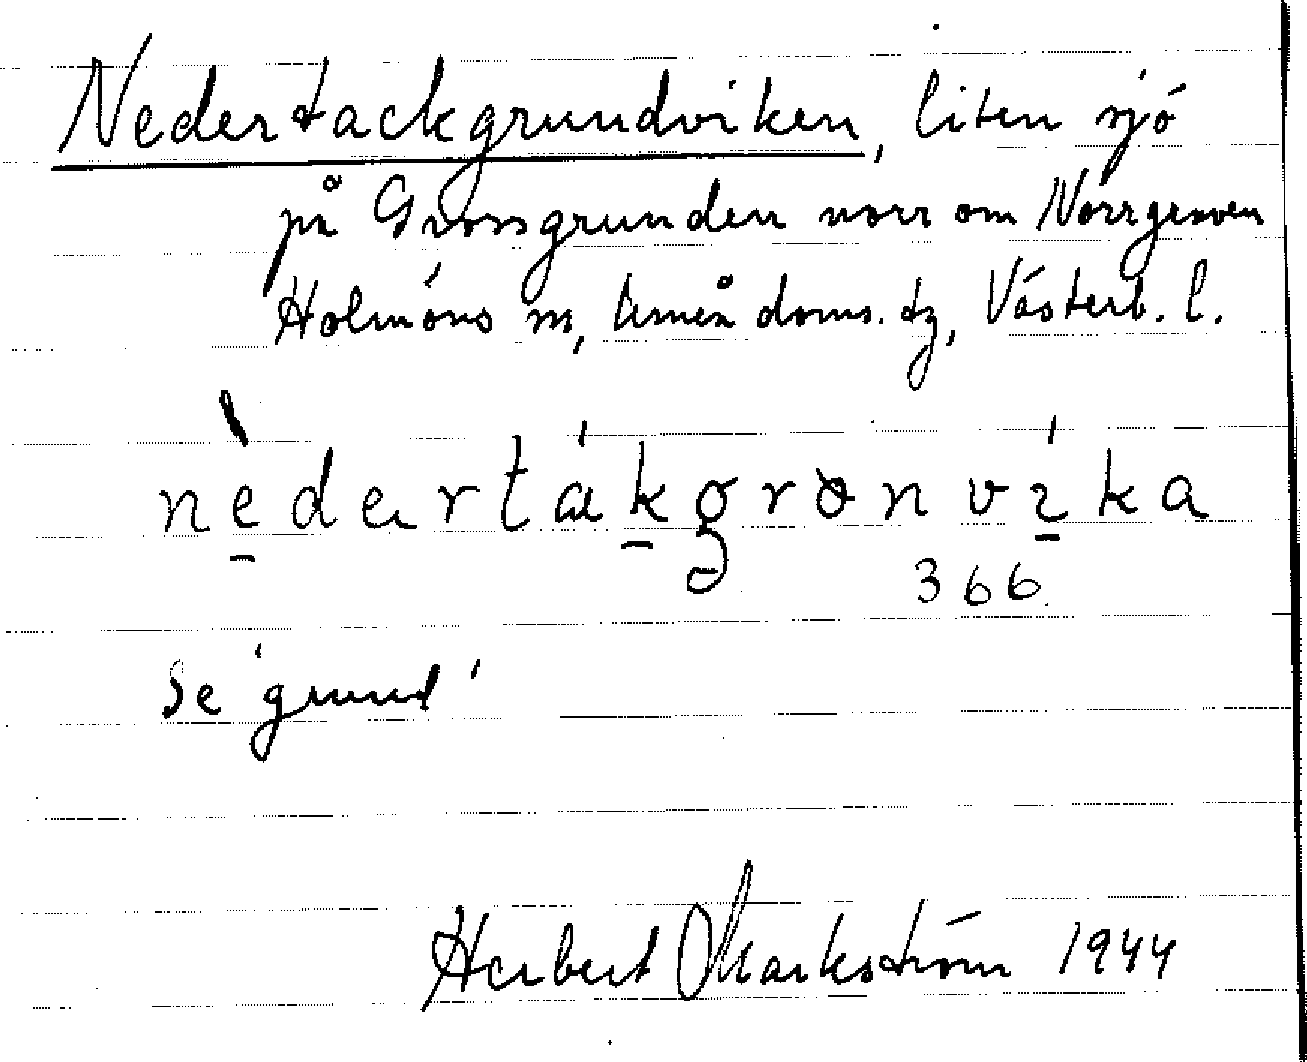 Nedertackgrundviken, liten sjö
på Grossgrunden norr om Norrgraven
Holmöns sn, Umeå doms. tg, Västerb. l.
nèdertákgronvíka
366
Se 'grund'
Herbert Markström 1944